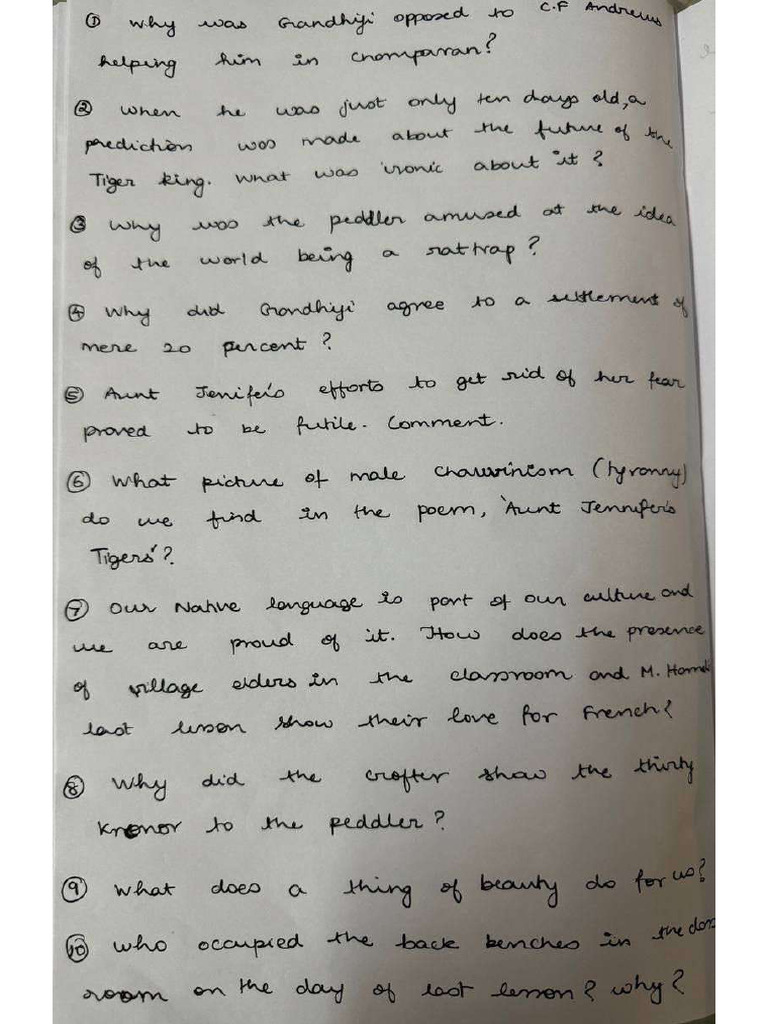 ① Why was Gandhiji opposed to C.F Andrews
helping him in Champaran?
② When he was just only ten days old, a
prediction was made about the future of the
Tiger King. What was ironic about it?
③ Why was the peddler amused at the idea
of the world being a rattrap?
④ Why did Gandhiji agree to a settlement of
mere 20 percent?
⑤ Aunt Jenifer's efforts to get rid of her fear
proved to be futile. Comment.
⑥ What picture of male chauvinism (tyranny)
do we find in the poem, 'Aunt Jennifer's
Tigers'?
⑦ Our Native language is part of our culture and
we are proud of it. How does the presence
of village elders in the classroom and M. Hamel
last lesson show their love for French?
⑧ Why did the crofter show the thirty
kronor to the peddler?
⑨ What does a thing of beauty do for us?
⑩ Who occupied the back benches in the class
room on the day of last lesson? Why?